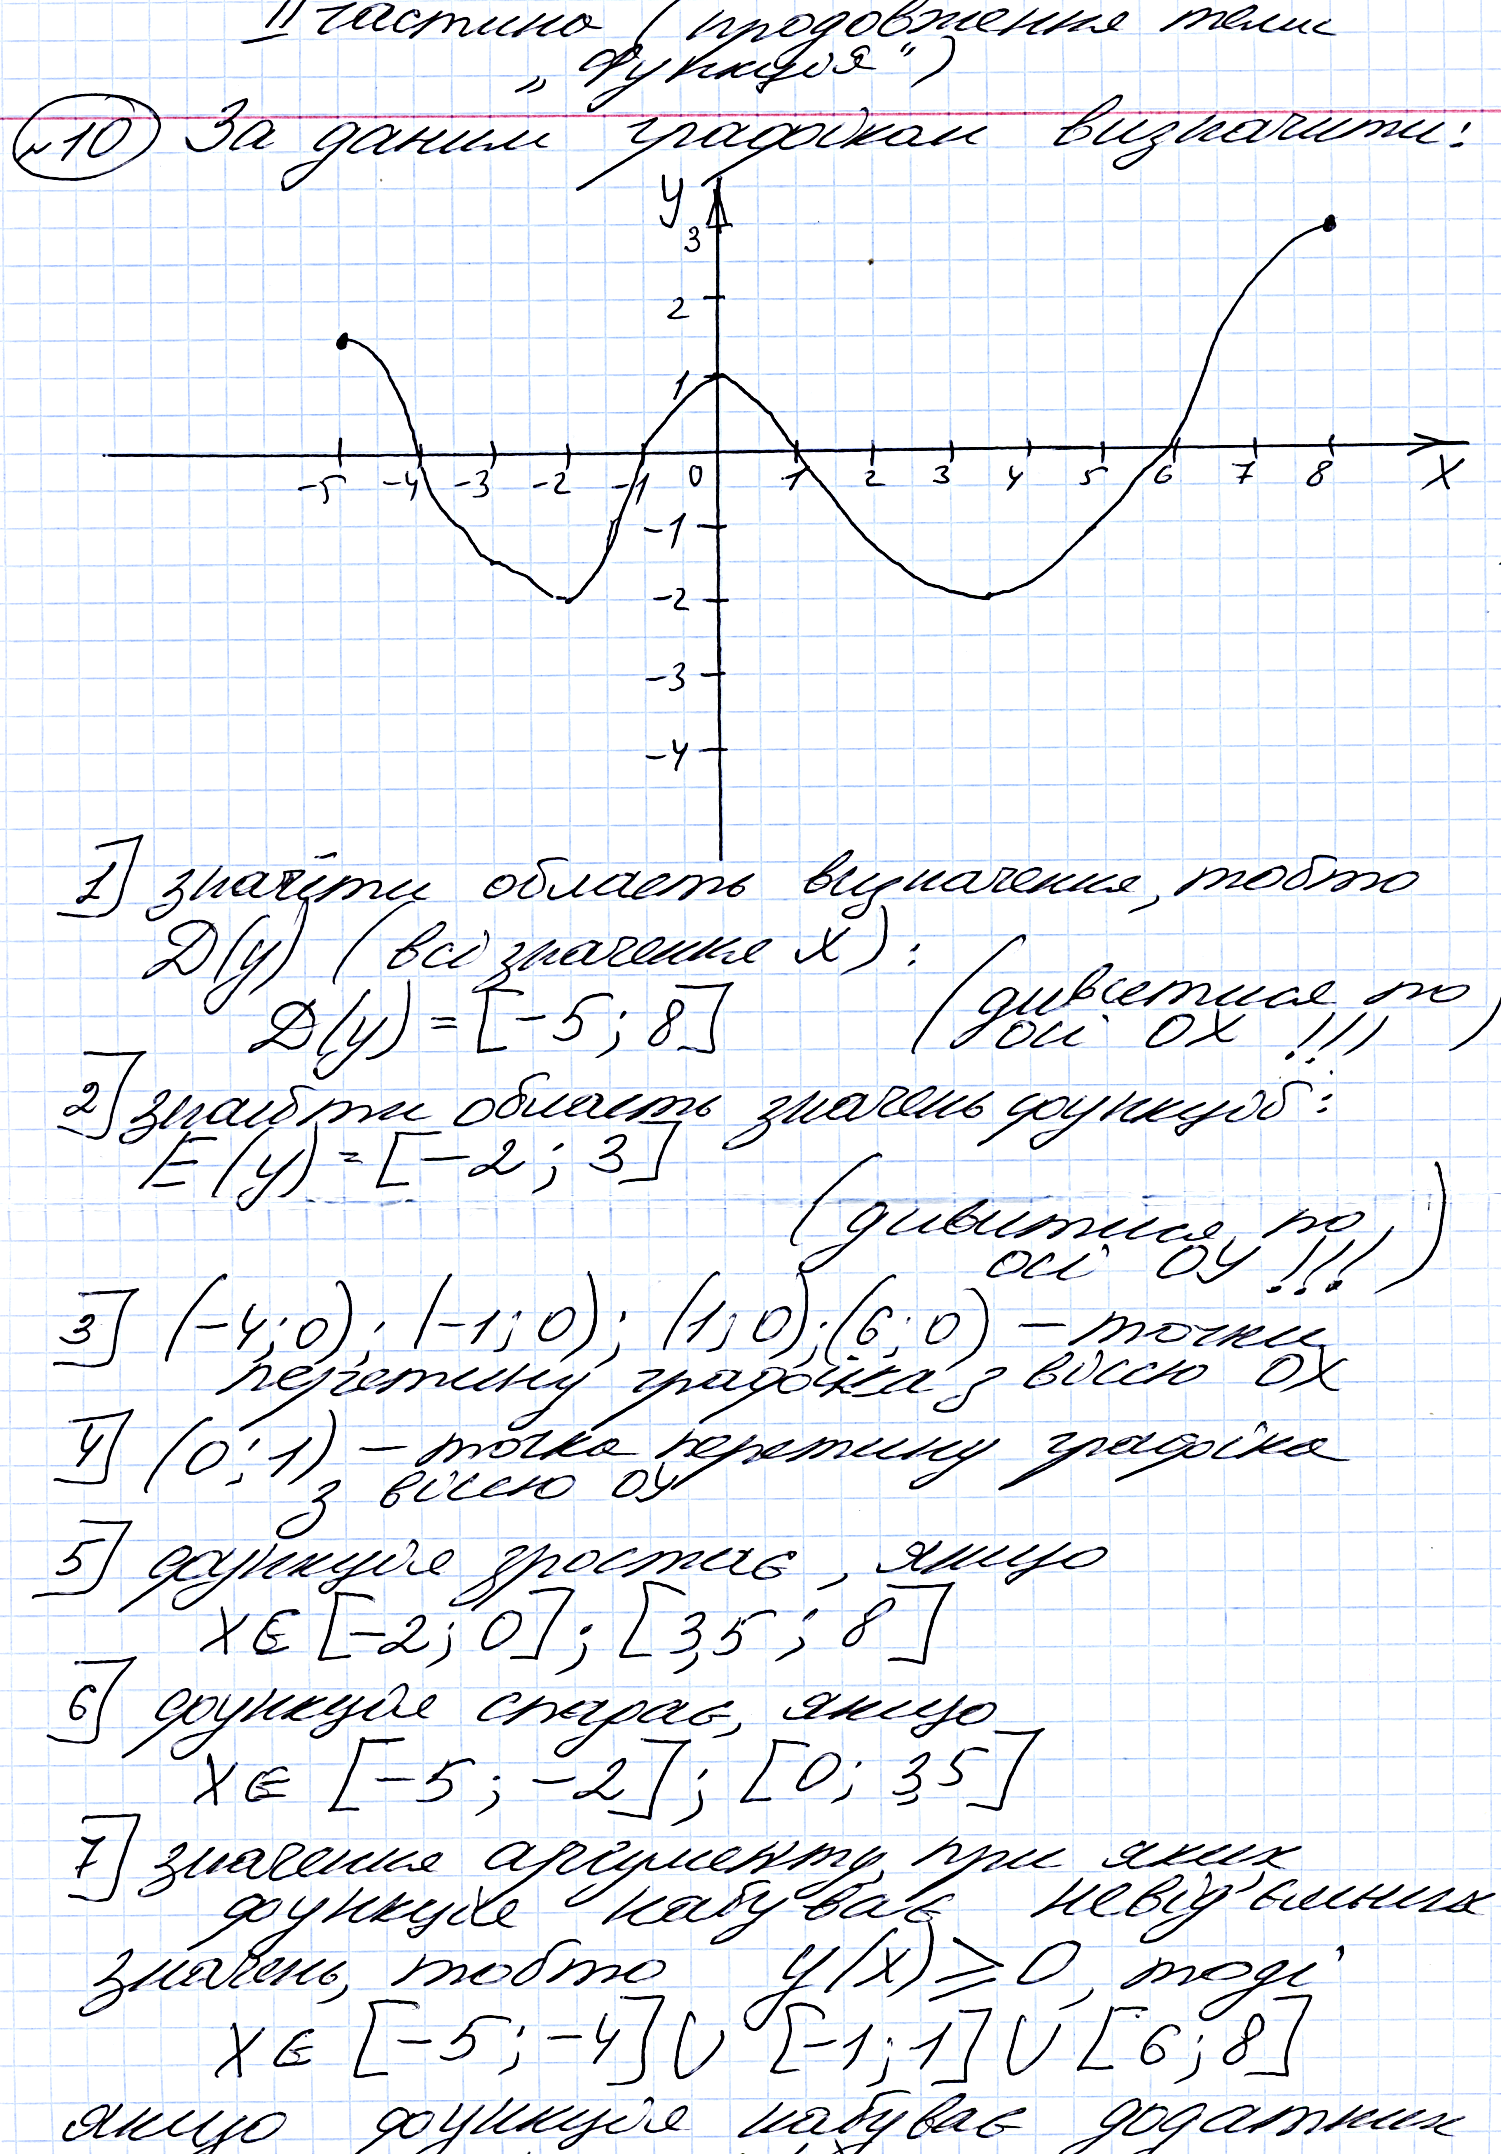 II частина (продовження теми
„Функція“)
№10 За даним графіком визначити:
y
3
2
1
-5 -4 -3 -2 -1 0 1 2 3 4 5 6 7 8 X
-1
-2
-3
-4
1] знайти область визначення, тобто
D(y) (всі значення x):
D(y) = [-5; 8] (дивитися по
осі OX !!!)
2] знайти область значень функції:
E(y) = [-2; 3]
(дивитися по
осі OY !!!)
3] (-4; 0); (-1; 0); (1; 0); (6; 0) – точки
перетину графіка з віссю OX
4] (0; 1) – точка перетину графіка
з віссю OY
5] функція зростає, якщо
x ∈ [-2; 0]; [3,5; 8]
6] функція спадає, якщо
x ∈ [-5; -2]; [0; 3,5]
7] значення аргументу, при яких
функція набуває невід'ємних
значень, тобто y(x) ≥ 0, тоді
x ∈ [-5; -4] ∪ [-1; 1] ∪ [6; 8]
якщо функція набуває додатних